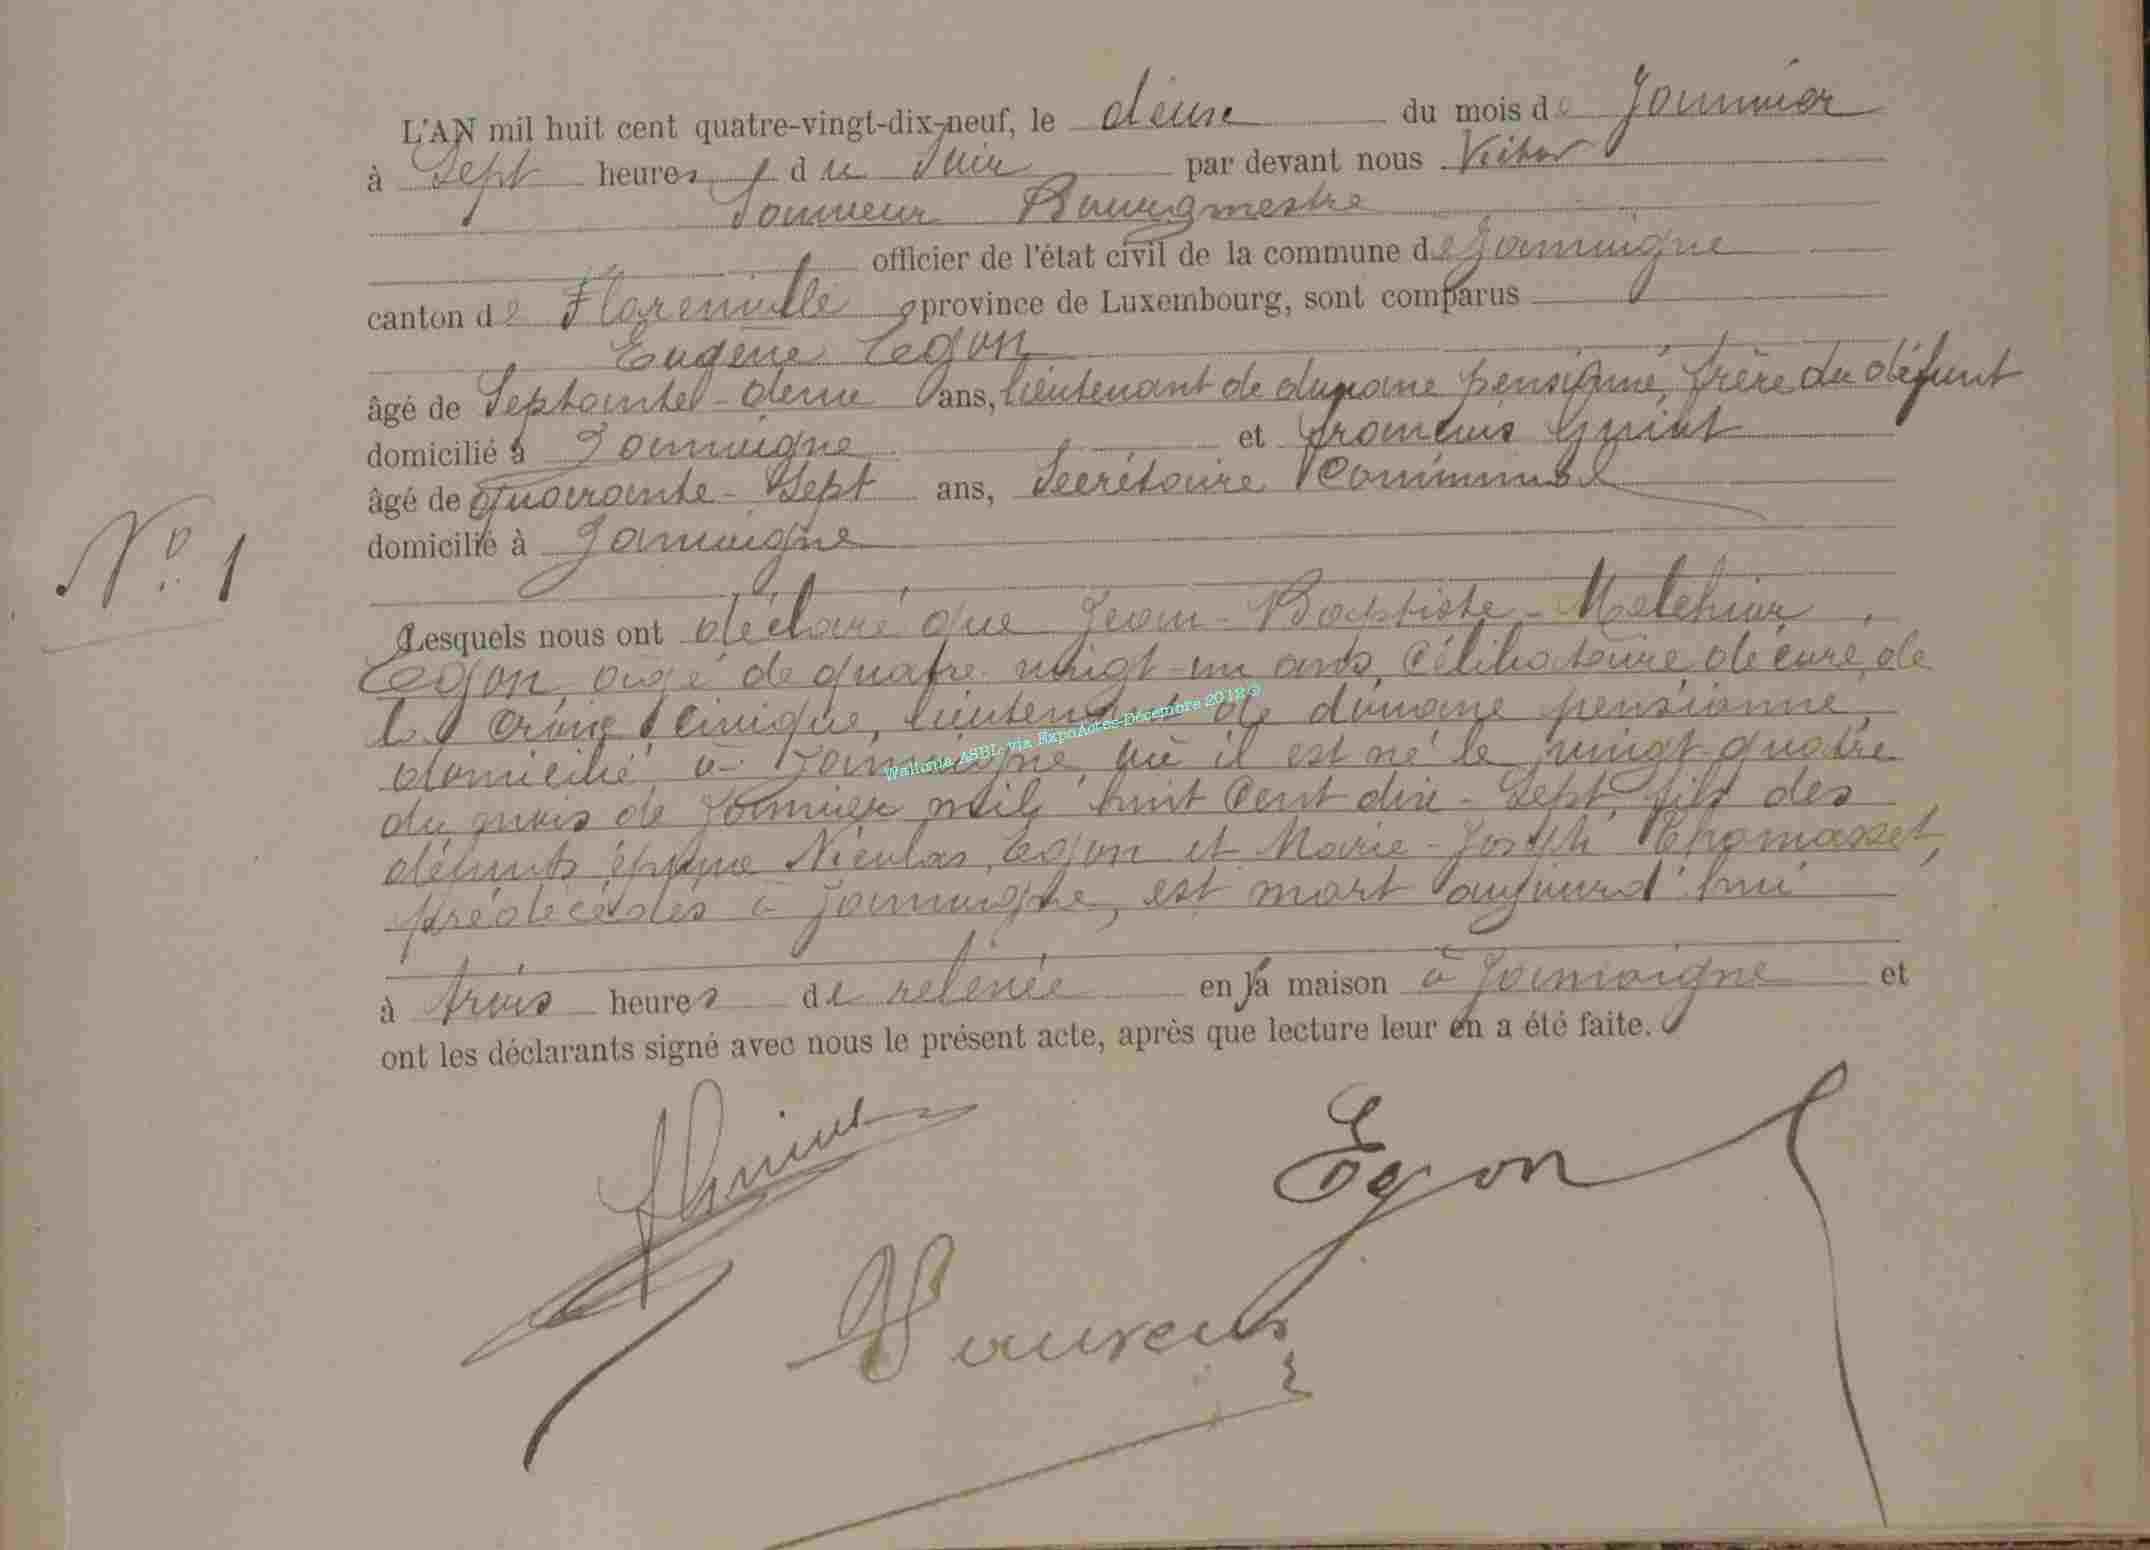 L'AN mil huit cent quatre-vingt-dix-neuf, le deux du mois de Janvier
à Sept heures du Soir par devant nous Victor
Bourgmestre
officier de l'état civil de la commune de Jamoigne
canton de Florenville province de Luxembourg, sont comparus
Eugène Egon
âgé de Septante-deux ans, lieutenant de douane pensionné, frère du défunt
domicilié à Jamoigne et François
âgé de quarante-Sept ans, Secrétaire Communal
domicilié à Jamoigne
N° 1
Lesquels nous ont déclaré que Jean-Baptiste-Melchior
Egon, âgé de quatre-vingt-un ans, Célibataire, décoré de
la Croix Civique, lieutenant de douane pensionné,
domicilié à Jamoigne, où il est né le vingt-quatre
du mois de Janvier mil huit Cent dix-Sept, fils des
défunts époux Nicolas Egon et Marie-Joseph Thomasset,
prédécédés à Jamoigne, est mort aujourd'hui
à trois heures de relevée en sa maison à Jamoigne et
ont les déclarants signé avec nous le présent acte, après que lecture leur en a été faite.
Egon
Wallonia ASBL via ExpoActes-Décembre 2018©